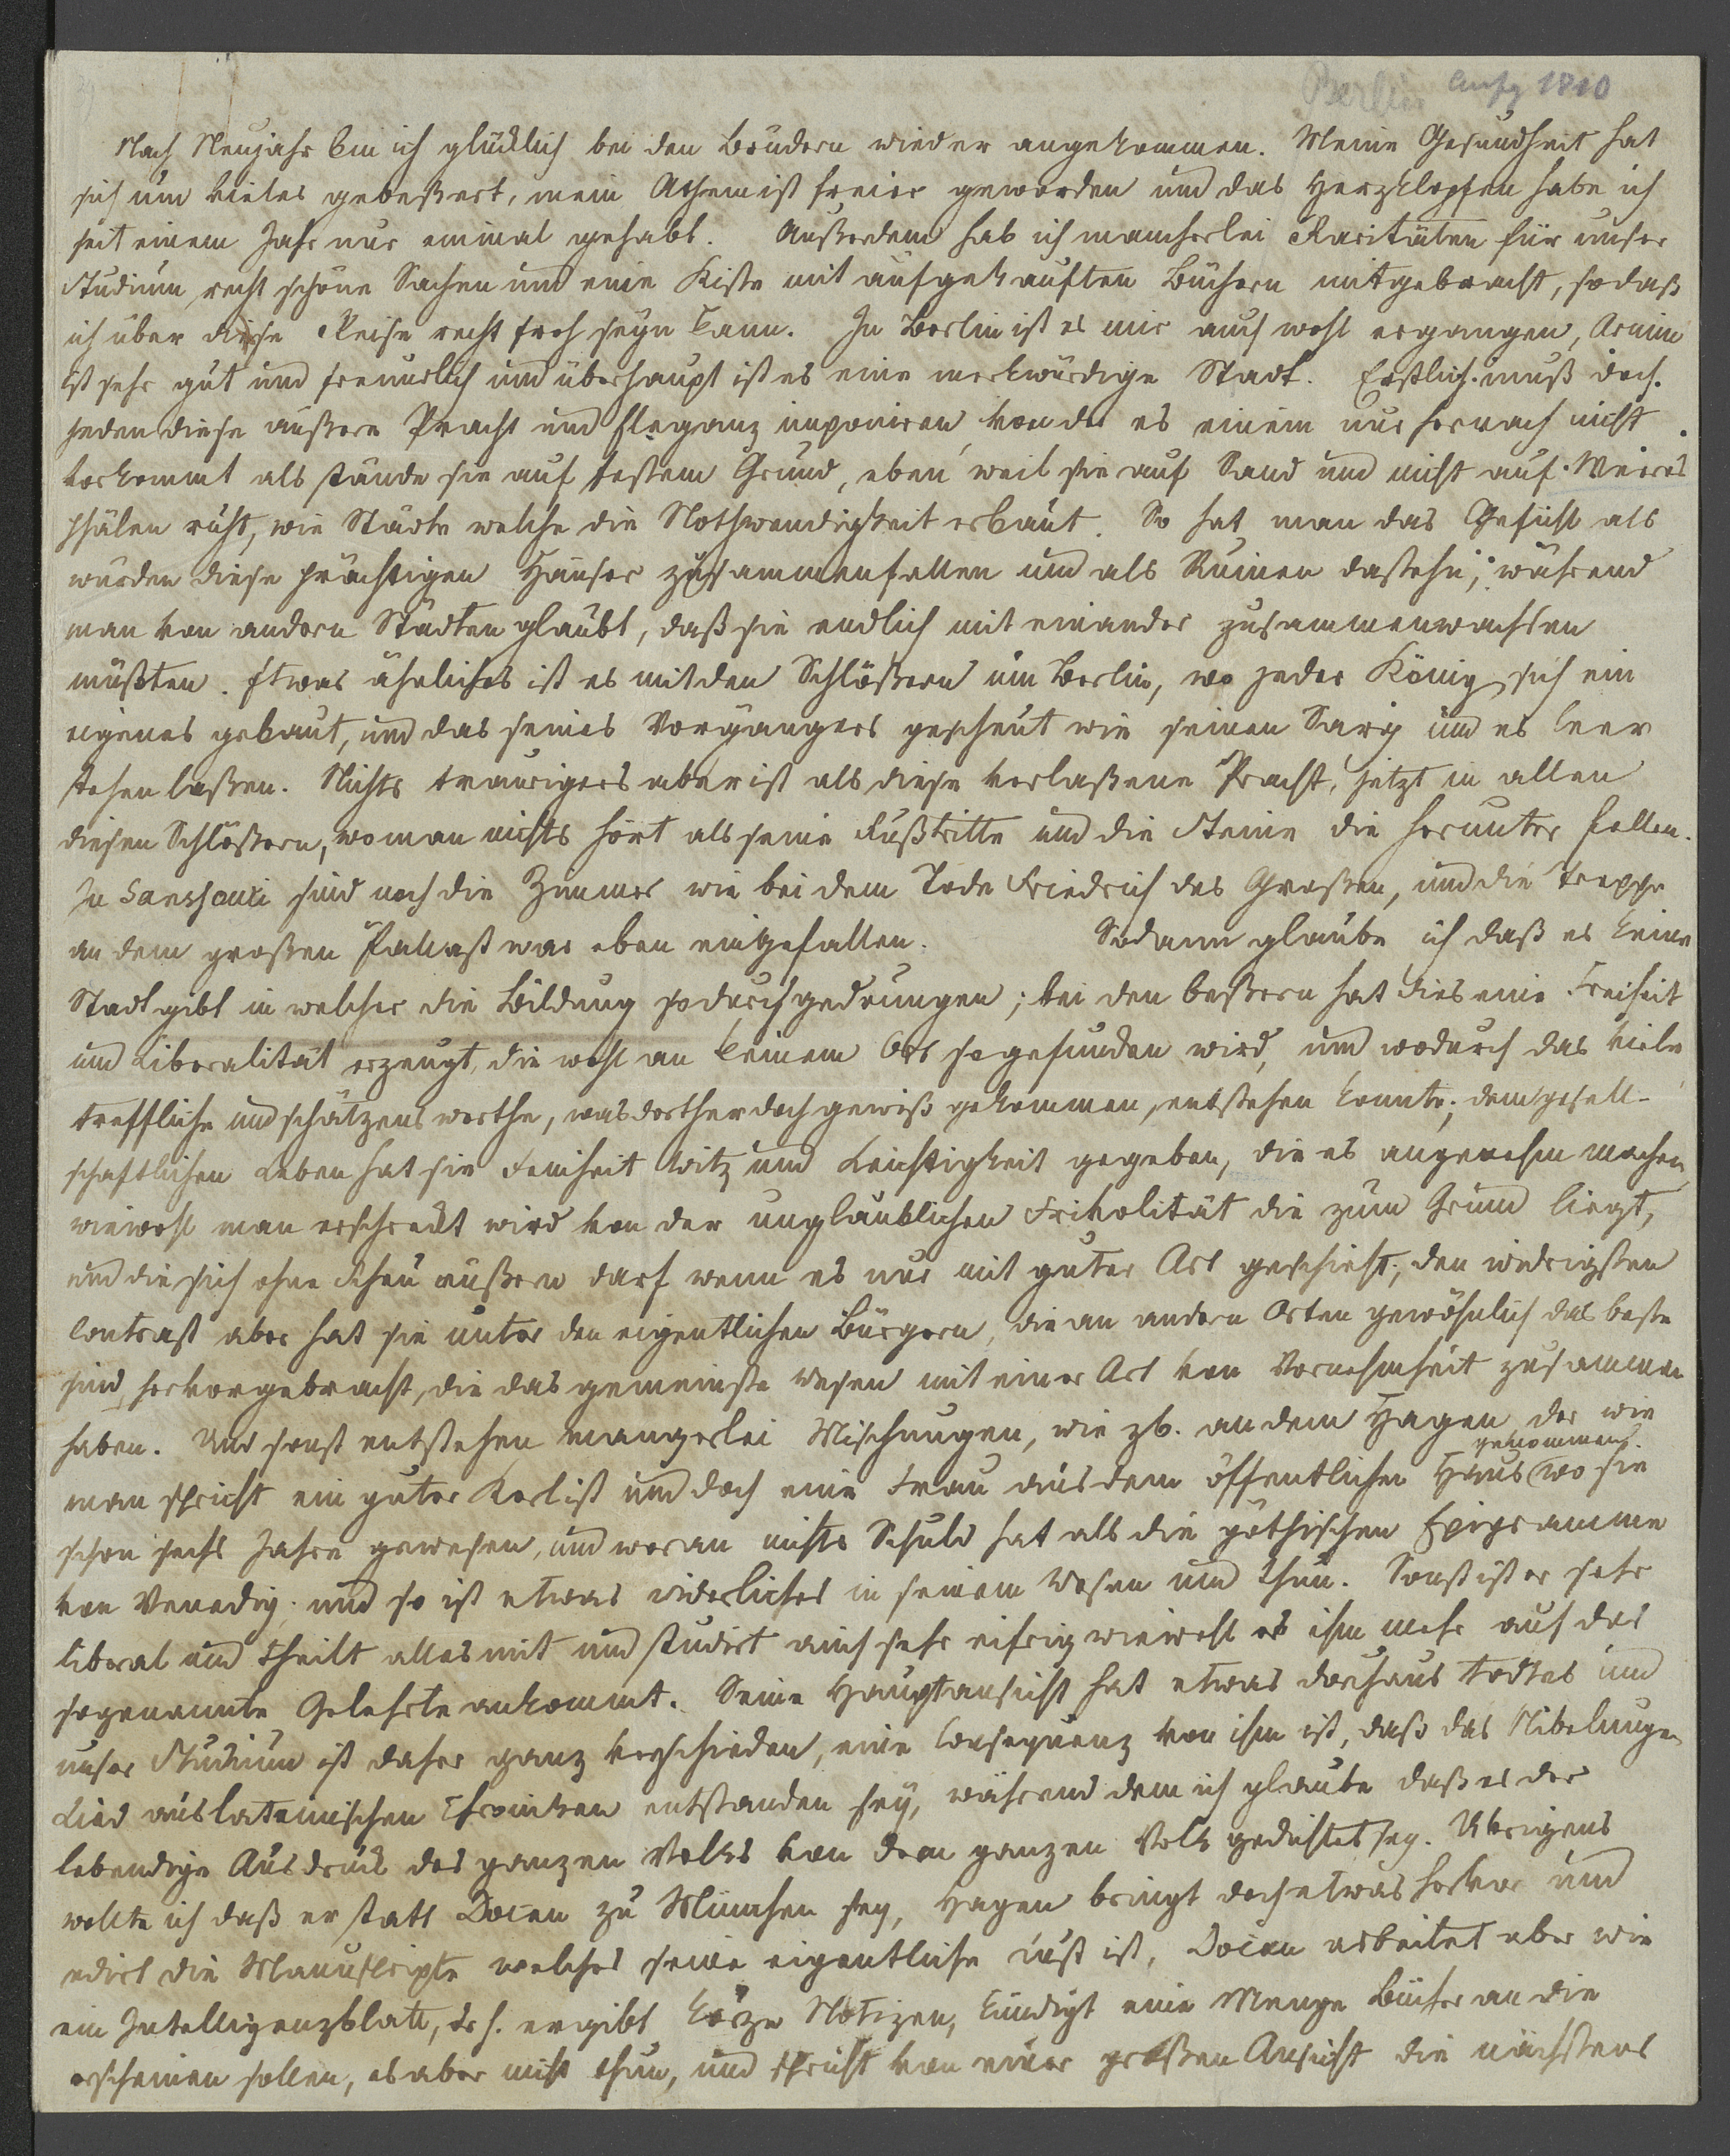 Berlin Anfg 1810
Nach Neujahr bin ich glücklich bei den Brüdern wieder angekommen. Meine Gesundheit hat
sich um vieles gebeßert, mein Athem ist freier geworden und das Herzklopfen habe ich
seit einem Jahr nur einmal gehabt. Außerdem hab ich mancherlei Raritäten für unser
Studium, recht schöne Sachen und eine Kiste mit aufgekauften Büchern mitgebracht, so daß
ich über diese Reise recht froh seyn kann. In Berlin ist es mir auch wohl ergangen, Arnim
ist sehr gut und freundlich und überhaupt ist es eine merkwürdige Stadt. Erstlich muß doch
jeden diese äußere Pracht und Eleganz imponiren, von der es einem nur hernach nicht
vorkommt als stände sie auf festem Grund, eben weil sie auf Sand und nicht auf Meeres
pfälen ruht, wie Städte welche die Nothwendigkeit erbaut. So hat man das Gefühl als
würden diese prächtigen Häuser zusammenfallen und als Ruinen dastehn, während
man von andern Städten glaubt, daß sie endlich mit einander zusammenwachsen
müßten. Etwas ähnliches ist es mit den Schlößern um Berlin, wo jeder König sich ein
eigenes gebaut, und das seines Vorgängers gescheut wie seinen Sarg und es leer
stehen laßen. Nichts trauriger aber ist als diese verlaßene Pracht, jetzt in allen
diesen Schlößern, wo man nichts hört als seine Fußtritte und die Steine die herunter fallen.
In Sanssouci sind noch die Zimmer wie bei dem Tode Friedrich des Großen, und die Treppe
an dem großen Pallast war eben eingefallen. Sodann glaube ich daß es keine
Stadt gibt in welcher die Bildung so durchgedrungen; bei den beßern hat dies eine Freiheit
und Liberalität erzeugt, die wohl an keinem Ort so gefunden wird, und wodurch das viele
treffliche und schätzenswerthe, was dorther doch gewiß gekommen, entstehen konnte; dem gesell-
schaftlichen Leben hat sie Feinheit Witz und Leichtigkeit gegeben, die es angenehm machen,
wiewohl man erschreckt wird von der unglaublichen Frivolität die zum Grund liegt,
und die sich ohne Scheu äußern darf wenn es nur mit guter Art geschieht; den widrigsten
Contrast aber hat sie unter den eigentlichen Bürgern, die an andern Orten gewöhnlich das beste
sind, hervorgebracht, die das gemeinste Wesen mit einer Art von Vornehmheit zusammen
haben. Und sonst entstehen mancherlei Mischungen, wie zb. an dem Hagen der wie
man spricht ein guter Kerl ist und doch eine Frau aus dem öffentlichen Haus genommen wo sie
schon sechs Jahre gewesen, und woran nichts Schuld hat als die göthischen Epigramme
von Venedig; und so ist etwas widerliches in seinem Wesen und Thun. Sonst ist er sehr
liberal und theilt alles mit und studirt auch sehr eifrig wiewohl es ihm mehr auf das
sogenannte Gelehrte ankommt. Seine Hauptansicht hat etwas durchaus todtes und
unser Studium ist daher ganz verschieden, eine Consequenz von ihm ist, daß das Nibelungen
Lied aus lateinischen Chroniken entstanden sey, während dem ich glaube daß es der
lebendige Ausdruck des ganzen Volks von dem ganzen Volk gedichtet sey. Übrigens
wollte ich daß er statt Docen zu München sey, Hagen bringt doch etwas hervor und
edirt die Manuscripte welches seine eigentliche Lust ist, Docen arbeitet aber wie
ein Intelligenzblatt, d. h. er gibt kurze Notizen, kündigt eine Menge Bücher an die
erscheinen sollen, es aber nicht thun, und spricht von einer großen Ansicht die nächstens